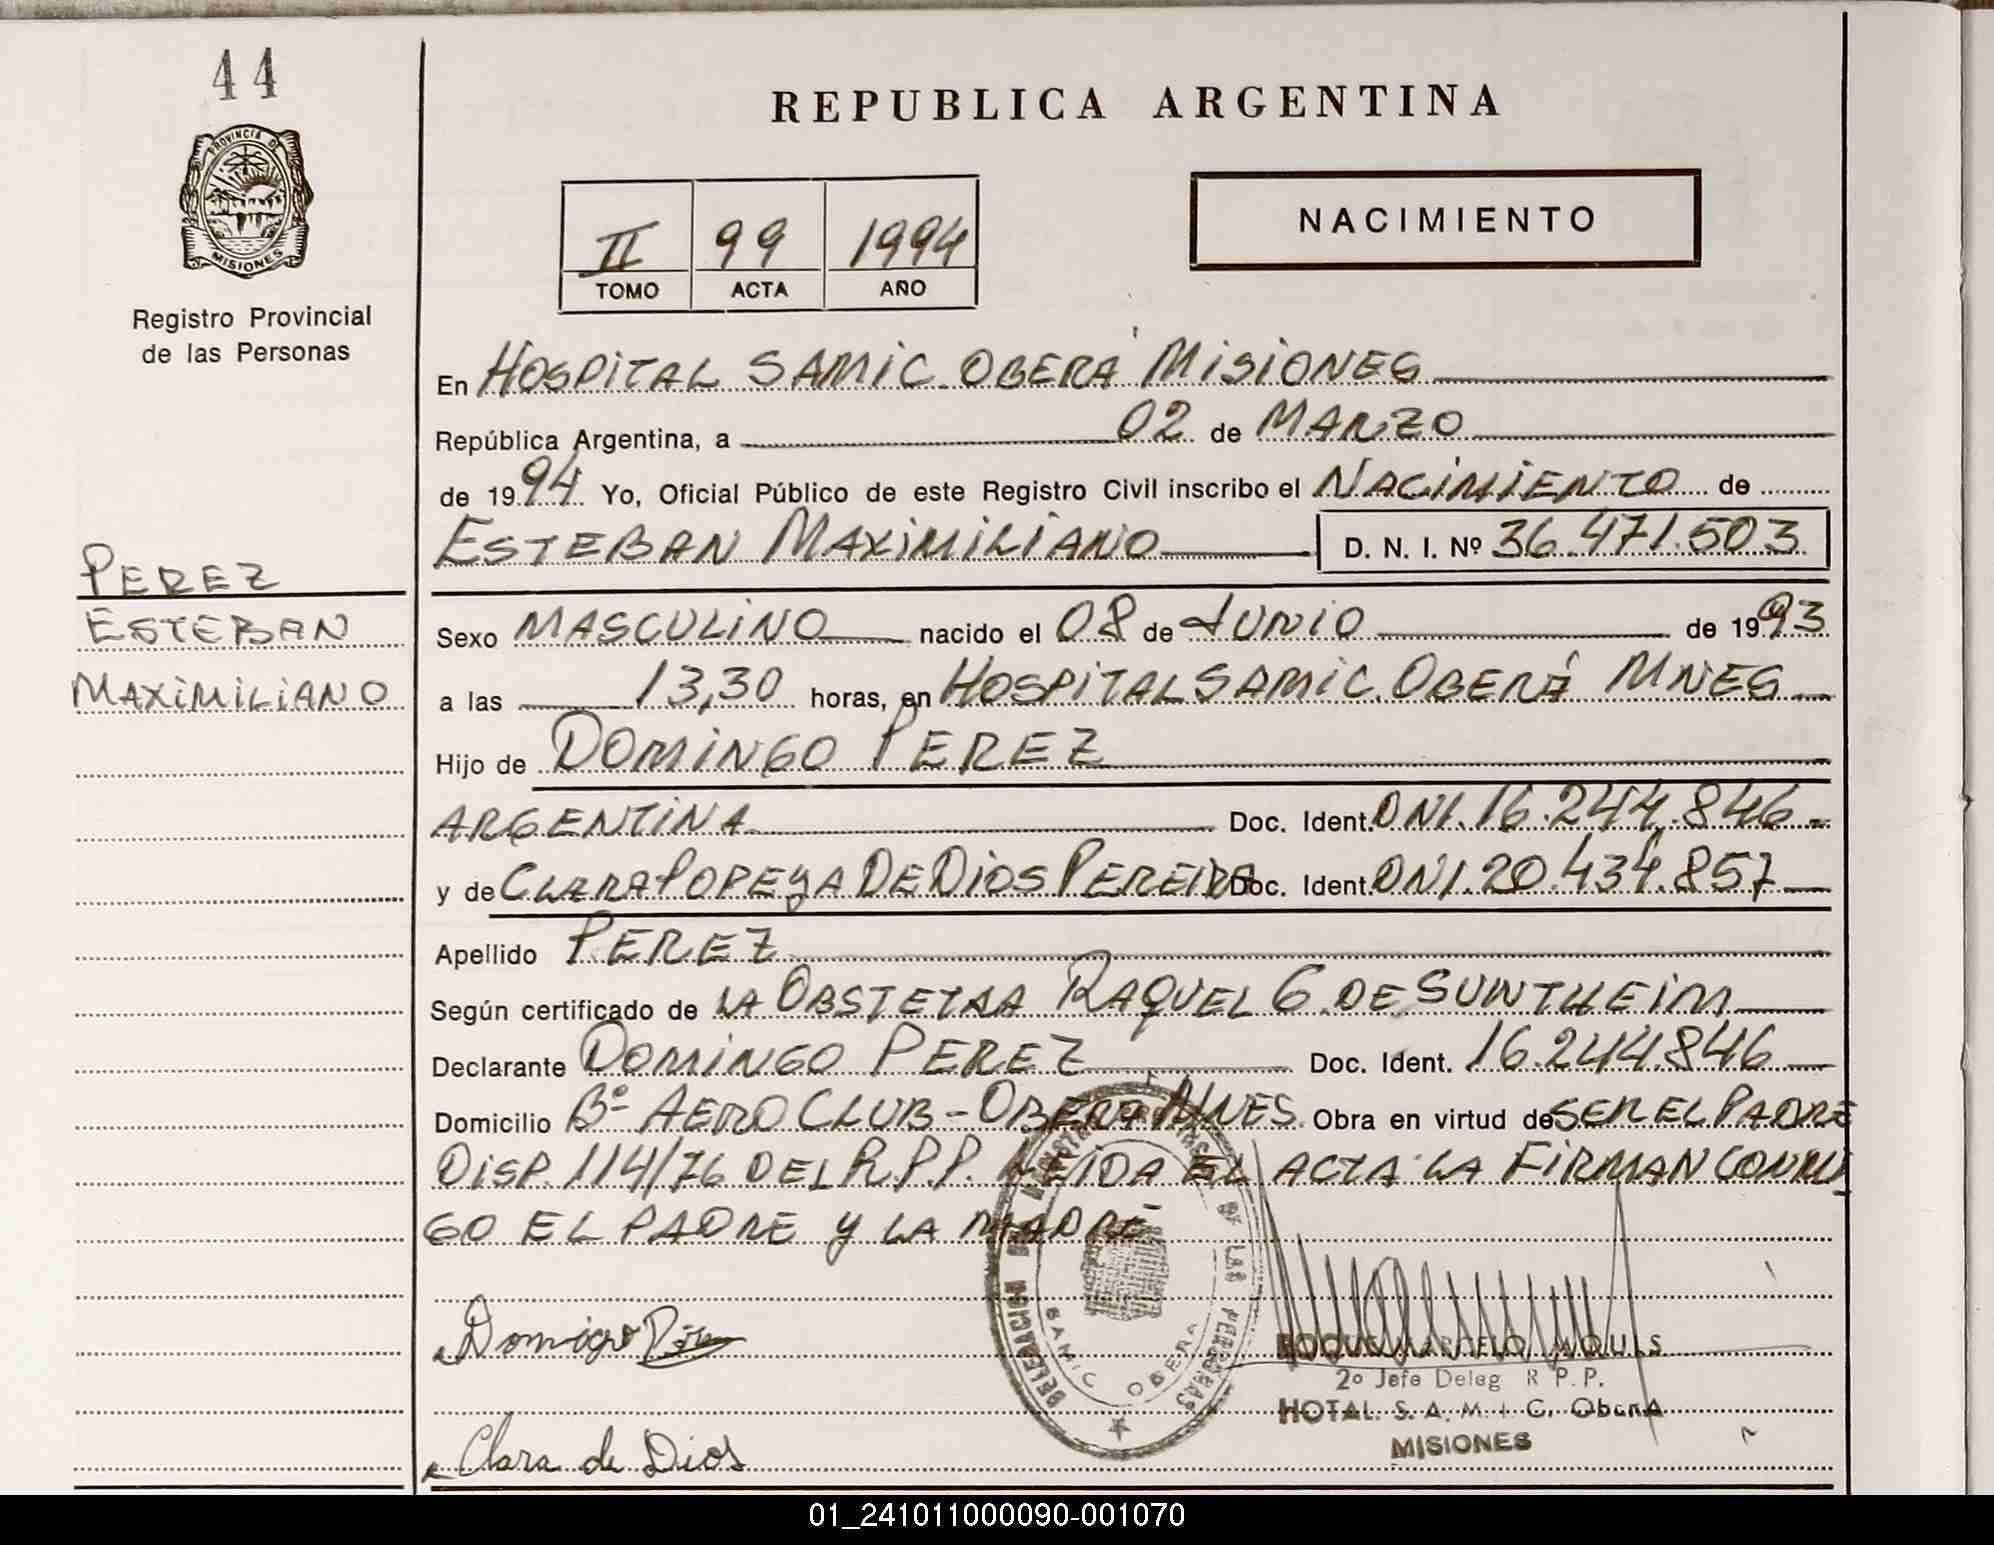 44
PROVINCIA DE
MISIONES
Registro Provincial
de las Personas
REPUBLICA ARGENTINA
II 99 1994
TOMO ACTA AÑO
NACIMIENTO
En HOSPITAL SAMIC OBERÁ MISIONES
República Argentina, a 02 de MARZO
de 1994 Yo, Oficial Público de este Registro Civil inscribo el NACIMIENTO de
ESTEBAN MAXIMILIANO D. N. I. Nº 36.471.503
PEREZ
ESTEBAN
MAXIMILIANO
Sexo MASCULINO nacido el 08 de JUNIO de 1993
a las 13,30 horas, en HOSPITAL SAMIC. OBERÁ MNES
Hijo de DOMINGO PEREZ
ARGENTINA Doc. Ident. DNI. 16.244.846
y de CLARA POPEYA DE DIOS PEREIRA Doc. Ident. DNI. 20.434.857
Apellido PEREZ
Según certificado de LA OBSTETRA RAQUEL G. DE SUNTHEIM
Declarante DOMINGO PEREZ Doc. Ident. 16.244.846
Domicilio Bº AERO CLUB - OBERA MNES. Obra en virtud de SER EL PADRE
DISP. 114/76 DEL R.P.P. LEIDA EL ACTA LA FIRMAN CONMI
GO EL PADRE Y LA MADRE
DELEGACION DE LAS PERSONAS
SAMIC OBERA
Domingo Pérez
Clara de Dios
ROQUE MARCELO
2º Jefe Deleg R.P.P.
HOTAL. S. A. M. I. C. OberA
MISIONES
01_241011000090-001070